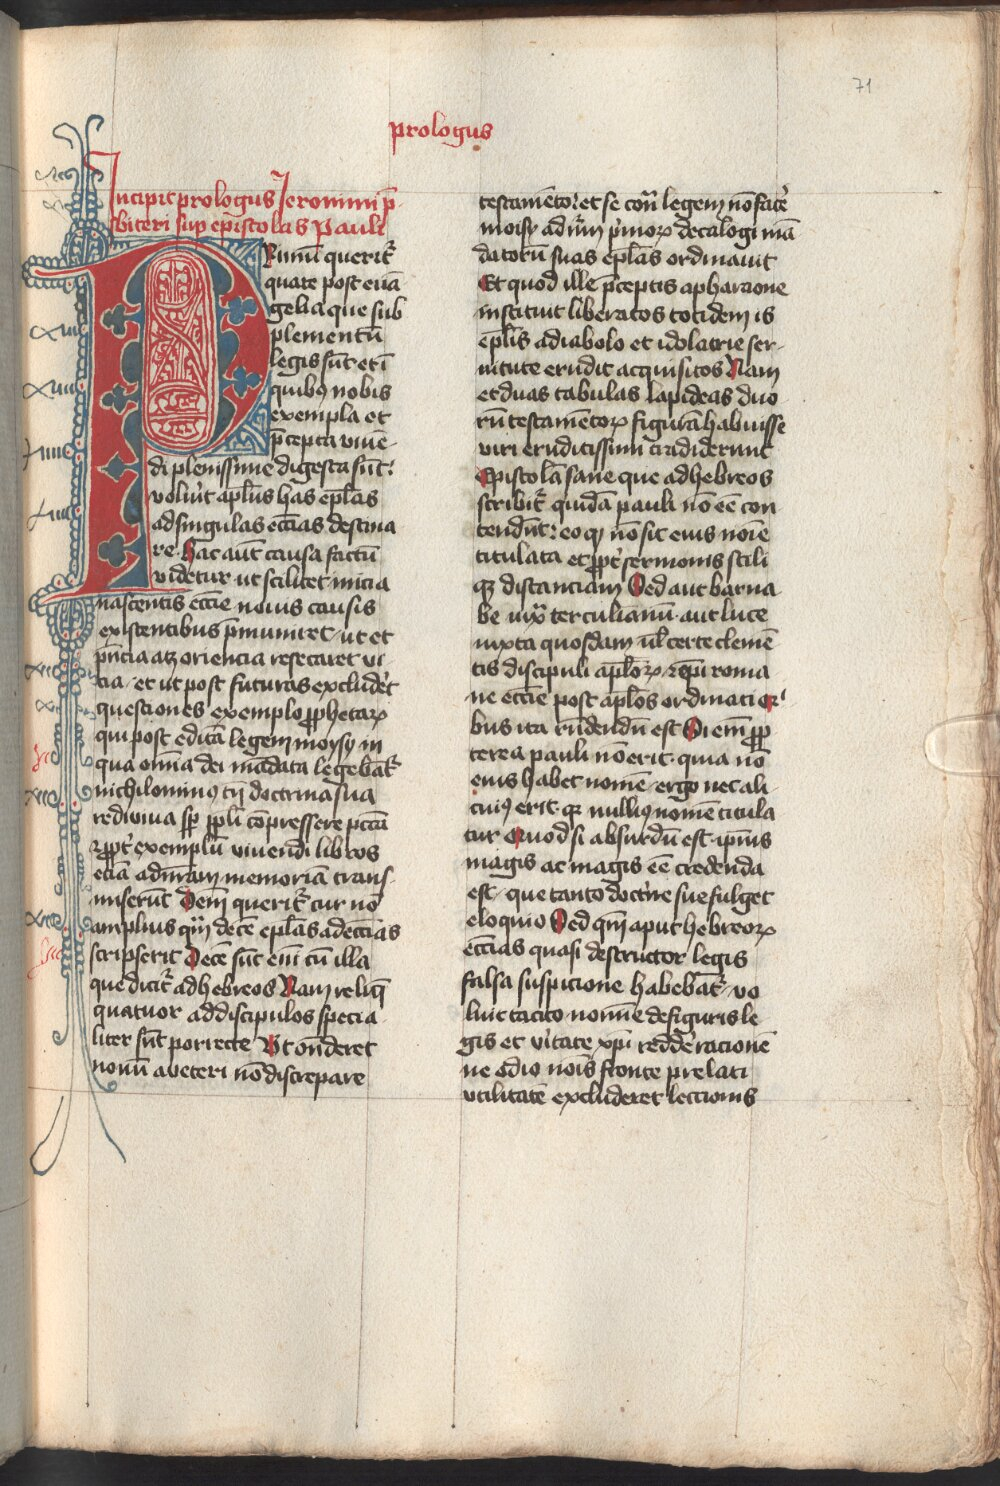 71
prologus
Incipit prologus Jeronimi p̄
sbiteri sup epistolas Pauli
Primū querit᷑
quare post euā
gelia que sub
plementū
legis sūt et ī
quibꝯ nobis
exempla et
p̄cepta viuē-
di plenissime digesta sūt:
voluit apl̄us has ep̄las
ad singulas ecc̄ias destina
re. Hac aūt causa factū
videtur ut scilicet inicia
nascentis ecc̄ie nouis causis
existentibus p̄muniret ut et
p̄ncia atꝫ oriencia resecaret vi-
cia et ut post futuras excludēt
questiones exemplo ꝓphetaꝝ
qui post editā legem moysy in
qua om̄ia dei mādata legebāt᷑
nichilominꝯ tn̄ doctrina sua
rediuiua sp̄ pp̄li cōpressere pctā
et ꝓpt᷑ exemplū viuendi libros
eciā ad nr̄am memoriā trans-
miserūt Dein̄ querit᷑ cur nō
amplius qm̄ decē ep̄las ad ecc̄ias
scripserit Decē sūt eni cū illa
que dicit᷑ ad hebreos Nam reliq̄
quatuor ad discipulos specia-
liter sūt porrecte Ut on̄deret
nouū a veteri nō discrepare
testamēto: et se cont᷑ legem nō facēt
moisy ad nr̄m p̄moꝝ decalogi mā
datorū suas ep̄las ordinauit
Et quod ille p̄ceptis a pharaone
instituit liberatos totidem is
ep̄lis a diabolo et idolatrie ser-
uitute erudit acquisitos Nam
et duas tabulas lapideas duo
rū testamētoꝝ figurā habuisse
viri eruditissimi tradiderunt
Epistolā sane que ad hebreos
scribit᷑ quidā pauli nō eē con
tendūt: eo qꝫ nō sit eius noīe
titulata et ꝓpt᷑ sermonis stili
qꝫ distanciam Sed aut barna
be iux᷑ terculianū aut luce
iuxta quosdam ul̄ certe clemē
tis discipuli apl̄oꝝ et ep̄i roma
ne ecc̄ie post apl̄os ordinati qr̄
bus ita rn̄dendū est Si em̄ ꝓp
terea pauli nō erit quia nō
eius habet nomē ergo nec ali-
cuiꝯ erit qꝛ nulliꝯ nomē titula
tur Quod si absurdū est ip̄ius
magis ac magis eē credenda
est que tanto doctrīe sue fulget
eloquio Sed qm̄ aput hebreoꝝ
ecc̄ias quasi destructor legis
falsa suspicione habebāt᷑ vo
luit tacito nomīe de figuris le
gis et v᷑itate xp̄i redd᷑e racionē
ne odio noīs fronte prelati
utilitatē excluderet lectionis